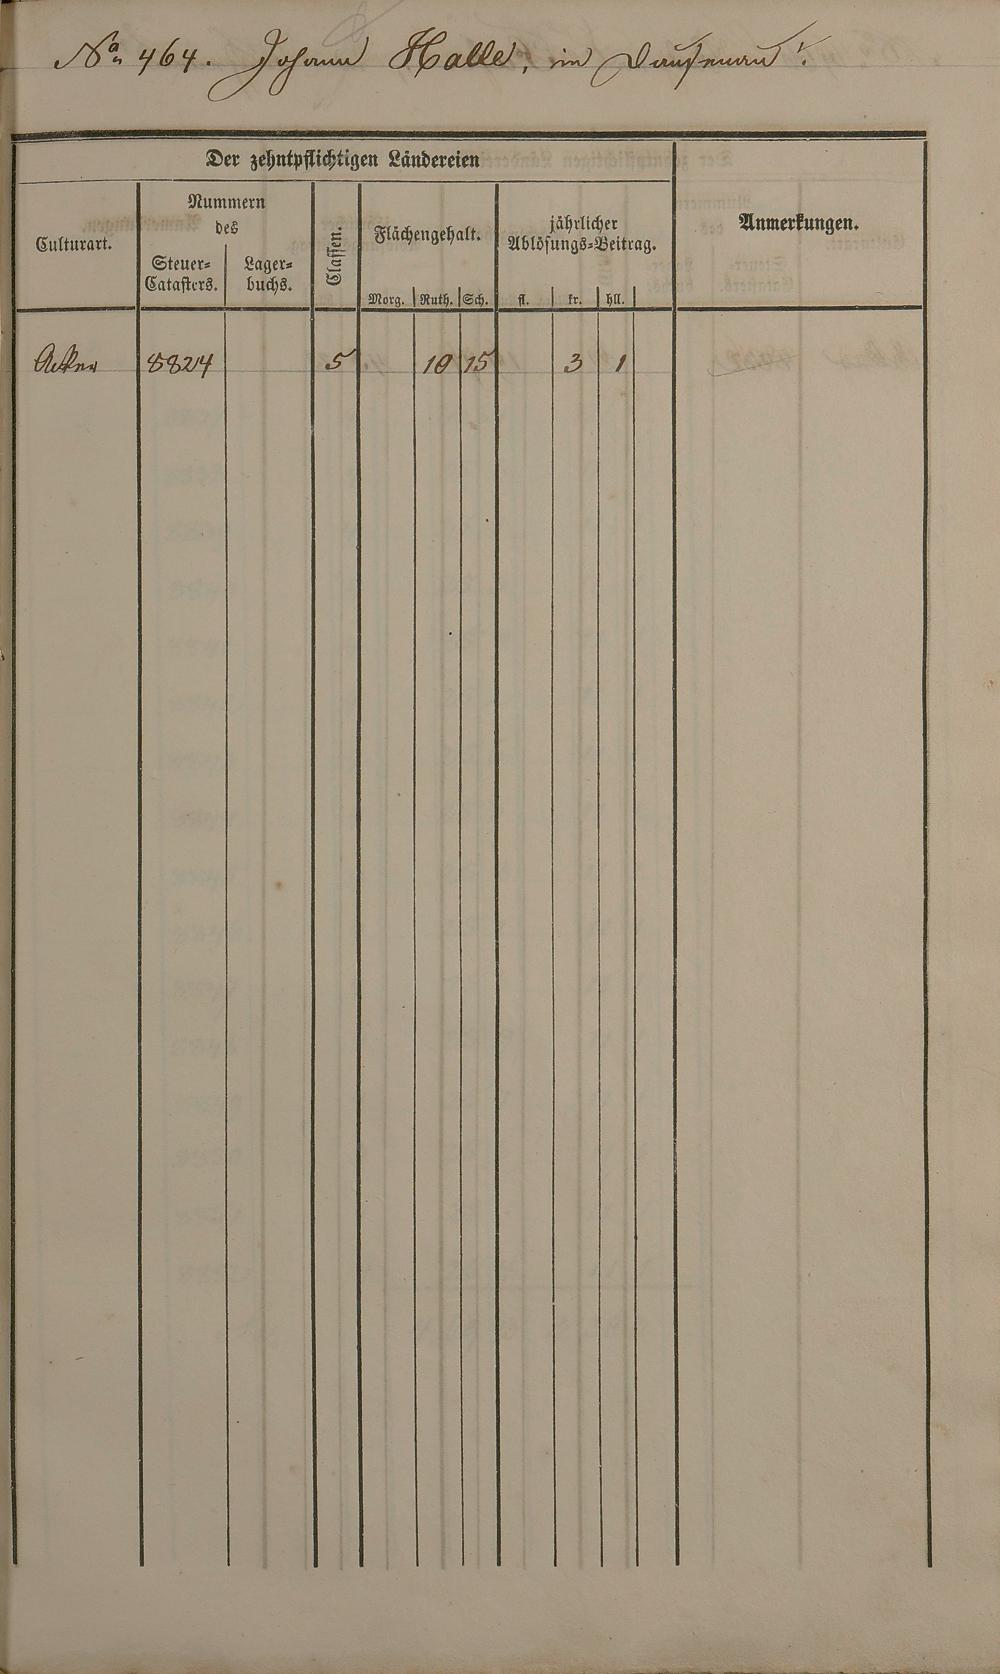 No. 464. Johann Halle, in Dausenau.
Der zehntpflichtigen Ländereien
Culturart.
Nummern
des
Steuer=
Catasters.
Lager=
buchs.
Classen.
Flächengehalt.
Morg. Ruth. Sch.
jährlicher
Ablösungs=Beitrag.
fl. kr. hll.
Anmerkungen.
Acker 8824 5 10 15 3 1